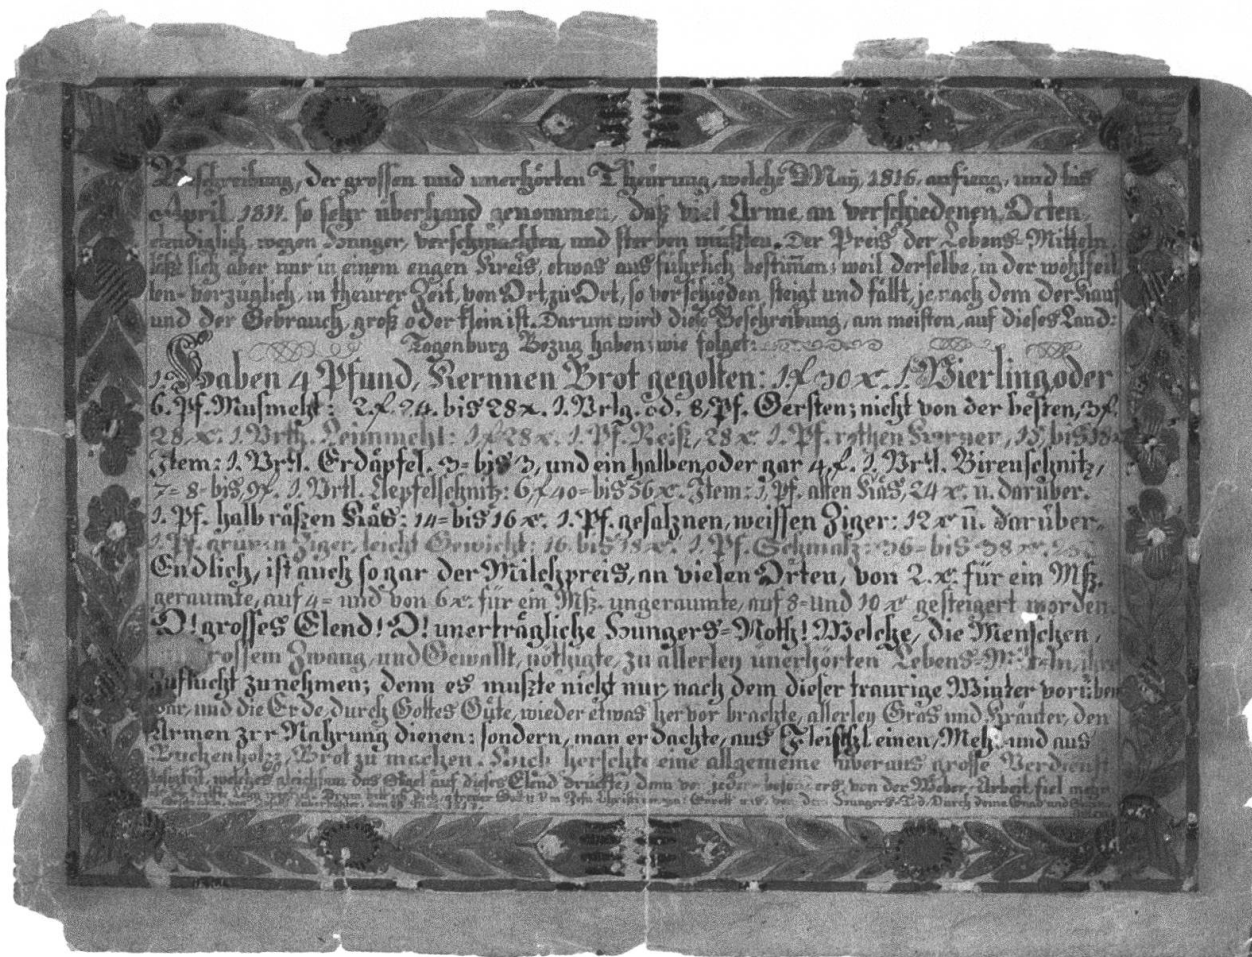 Beschreibung, der grossen und unerhörten Theürung, welche Maÿ, 1816. anfieng, und bis
April. 1817. so sehr überhand genommen, daß viel Arme, an verschiedenen Orten,
elendiglich, wegen Hunger, verschmachten, und sterben mußten. Der Preis der Lebens=Mitteln
läßt sich aber nur in einem engen Kreis, etwas ausführlich bestim̅en; weil derselbe, in der wohlfeil
en= vorzüglich, in theürer Zeit, von Ort, zu Ort, so verschieden, steigt und fällt, je nach dem der Kauf
und der Gebrauch, groß oder klein ist. Darum wird diese Beschreibung, am meisten, auf dieses Land:
Togenburg Bezug haben; wie folget:
1. Haben 4 Pfund, Kernnen Brot gegolten: 1 f 30 x. 1. Vierling, oder
6. Pf. Musmehl: 2. f. 24. bis 28 x. 1. Vrlg. od. 8, Pf. Gersten; nicht von der besten, 3 f.
28, x. 1. Vrtl. Leimmehl: 1 f 28 x. 1. Pf. Reiß, 28 x 1. Pf. rothen 15, bis 18 x
Item: 1. Vrtl. Erdäpfel. 3= bis 3, und ein halben, oder gar 4, f. 1. Vrtl. Birenschnitz,
7= 8= bis, 9 f. 1. Vrtl. Aepfelschnitz: 6, f 40= bis 56 x. Item: 1, Pf. alten Käs, 24 x. u. darüber.
1. Pf. halb räßen Käs: 14= bis 16 x. 1. Pf. gesalznen, weissen Ziger: 12 x u̅. darüber.
1. Pf. grünen Ziger, leicht Gewicht: 16 bis 18 x. 1. Pf. Schmalz: 36= bis 38 x.
Endlich, ist auch sogar der Milchpreis, an vielen Orten, von 2. x. für ein Mß.
geraumte, auf 4= und von 6 x. für ein Mß. ungeraumte, auf 8= und 10 x gesteigert worden.
O! grosses Elend! O! unerträgliche Hungers=Noth! Welche, die Menschen,
grossem Zwang, und Gewallt, nöthigte, zu allerley unerhörten Lebens=Mitteln, ihre
Zuflucht zu nehmen; denn es mußte nicht nur, nach dem dieser traurige Winter vorüber
war, und die Erde, durch Gottes Güte, wieder etwas hervor brachte, allerley Gras und Kräuter, den
Armen zur Nahrung dienen: sondern, man erdachte, aus Fleisch, einen, Mehl und aus
Buchenholz, Brot zu machen. Auch herschte eine allgemeine überaus grosse Verdienst
losigkeit, welches gleichsam das Sigel auf dieses Elend drückte; denn von jeder, besonders, von der Weber=Arbeit fiel mehr
Drum bitt ich dich, Gott von dem Hungers=Tod, Durch deine Gnad und